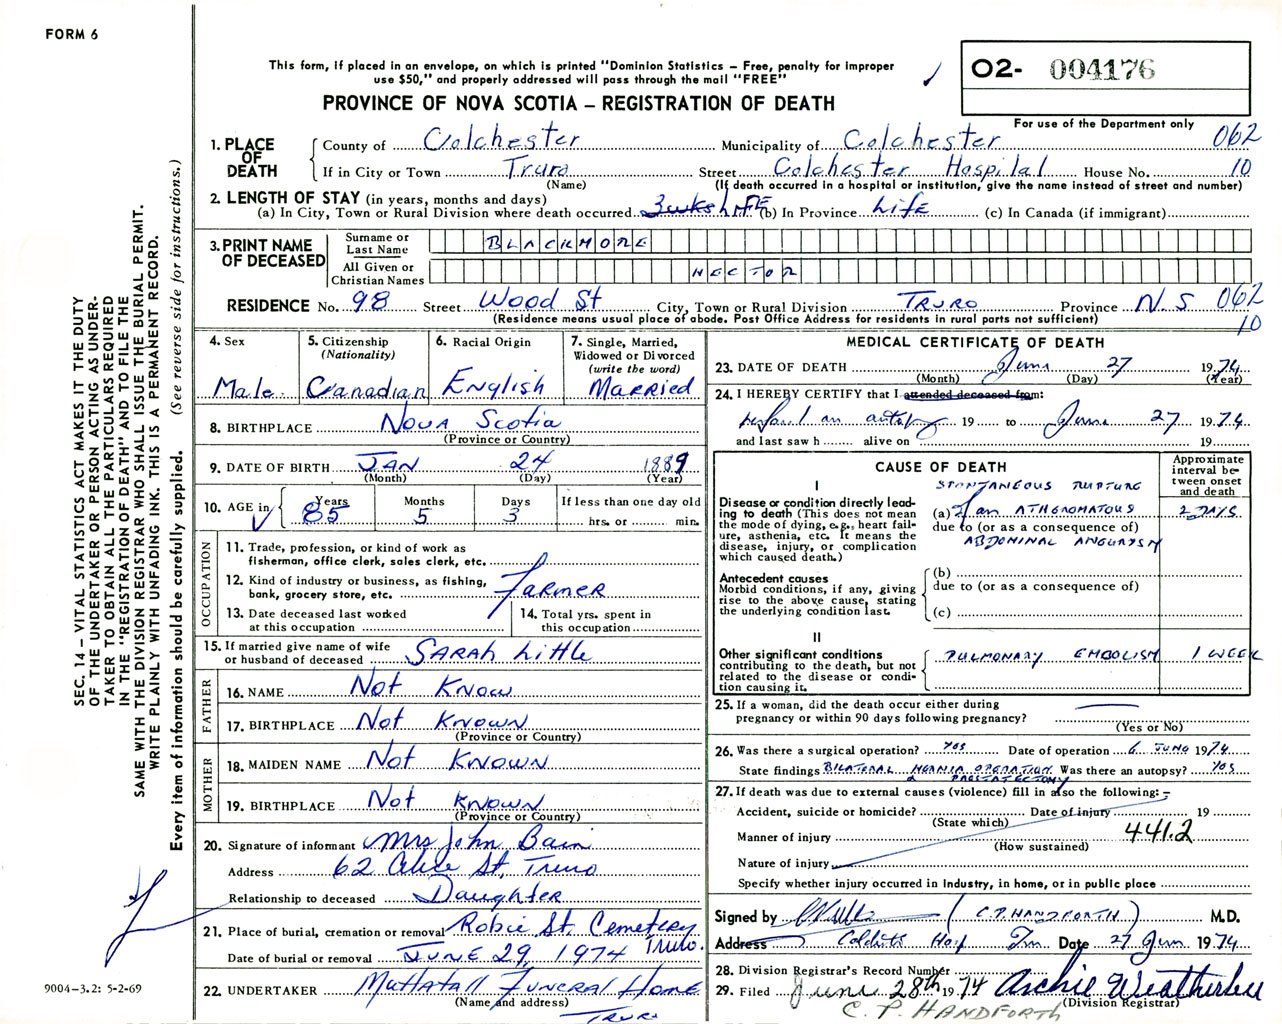 FORM 6
This form, if placed in an envelope, on which is printed "Dominion Statistics – Free, penalty for improper
use $50," and properly addressed will pass through the mail "FREE"
O2- 004176
PROVINCE OF NOVA SCOTIA – REGISTRATION OF DEATH
For use of the Department only
1. PLACE OF DEATH
County of Colchester Municipality of Colchester 062
If in City or Town Truro Street Colchester Hospital House No. 10
(Name) (If death occurred in a hospital or institution, give the name instead of street and number)
2. LENGTH OF STAY (in years, months and days)
(a) In City, Town or Rural Division where death occurred LIFE (b) In Province Life (c) In Canada (if immigrant)
3. PRINT NAME OF DECEASED
Surname or Last Name BLACKMORE
All Given or Christian Names HECTOR
RESIDENCE No. 98 Street Wood St City, Town or Rural Division TRURO Province N.S 062
(Residence means usual place of abode. Post Office Address for residents in rural parts not sufficient) 10
4. Sex
Male
5. Citizenship
(Nationality)
Canadian
6. Racial Origin
English
7. Single, Married,
Widowed or Divorced
(write the word)
Married
8. BIRTHPLACE Nova Scotia
(Province or Country)
9. DATE OF BIRTH JAN 24 1889
(Month) (Day) (Year)
10. AGE in
Years Months Days If less than one day old
85 5 3 hrs. or min.
OCCUPATION
11. Trade, profession, or kind of work as
fisherman, office clerk, sales clerk, etc.
12. Kind of industry or business, as fishing,
bank, grocery store, etc. Farmer
13. Date deceased last worked
at this occupation
14. Total yrs. spent in
this occupation
15. If married give name of wife
or husband of deceased SARAH Little
FATHER
16. NAME Not Know
17. BIRTHPLACE Not Known
(Province or Country)
MOTHER
18. MAIDEN NAME Not Known
19. BIRTHPLACE Not Known
(Province or Country)
20. Signature of informant Mrs John Bain
Address 62 Alice St, Truro
Relationship to deceased Daughter
21. Place of burial, cremation or removal Robie St. Cemetery
Truro.
Date of burial or removal JUNE 29, 1974
22. UNDERTAKER Mattatall Funeral Home
(Name and address)
TRURO
MEDICAL CERTIFICATE OF DEATH
23. DATE OF DEATH June 27 1974
(Month) (Day) (Year)
24. I HEREBY CERTIFY that I attended deceased from:
an autopsy 19 to June 27 1974
and last saw h alive on 19
CAUSE OF DEATH
Approximate
interval be-
tween onset
and death
I
Disease or condition directly lead-
ing to death (This does not mean
the mode of dying, e.g., heart fail-
ure, asthenia, etc. It means the
disease, injury, or complication
which caused death.)
SPONTANEOUS RUPTURE
(a) of an ATHEROMATOUS 2 DAYS
due to (or as a consequence of)
ABDOMINAL ANEURYSM
Antecedent causes
Morbid conditions, if any, giving
rise to the above cause, stating
the underlying condition last.
(b)
due to (or as a consequence of)
(c)
II
Other significant conditions
contributing to the death, but not
related to the disease or condi-
tion causing it.
PULMONARY EMBOLISM 1 WEEK
25. If a woman, did the death occur either during
pregnancy or within 90 days following pregnancy?
(Yes or No)
26. Was there a surgical operation? YES Date of operation 6 JUNE 1974
State findings BILATERAL HERNIA OPERATION Was there an autopsy? YES
& PROSTATECTOMY
27. If death was due to external causes (violence) fill in also the following:
Accident, suicide or homicide? Date of injury 19
(State which)
Manner of injury 441.2
(How sustained)
Nature of injury
Specify whether injury occurred in Industry, in home, or in public place
Signed by (C.P. HANDFORTH) M.D.
Address Hosp Date 27 Jun 1974
28. Division Registrar's Record Number
29. Filed June 28th 1974 Archie Weatherbee
(Division Registrar)
C. P. HANDFORTH
SEC. 14 – VITAL STATISTICS ACT MAKES IT THE DUTY
OF THE UNDERTAKER OR PERSON ACTING AS UNDER-
TAKER TO OBTAIN ALL THE PARTICULARS REQUIRED
IN THE "REGISTRATION OF DEATH" AND TO FILE THE
SAME WITH THE DIVISION REGISTRAR WHO SHALL ISSUE THE BURIAL PERMIT.
WRITE PLAINLY WITH UNFADING INK. THIS IS A PERMANENT RECORD.
Every item of information should be carefully supplied. (See reverse side for instructions.)
9004-3.2: 5-2-69